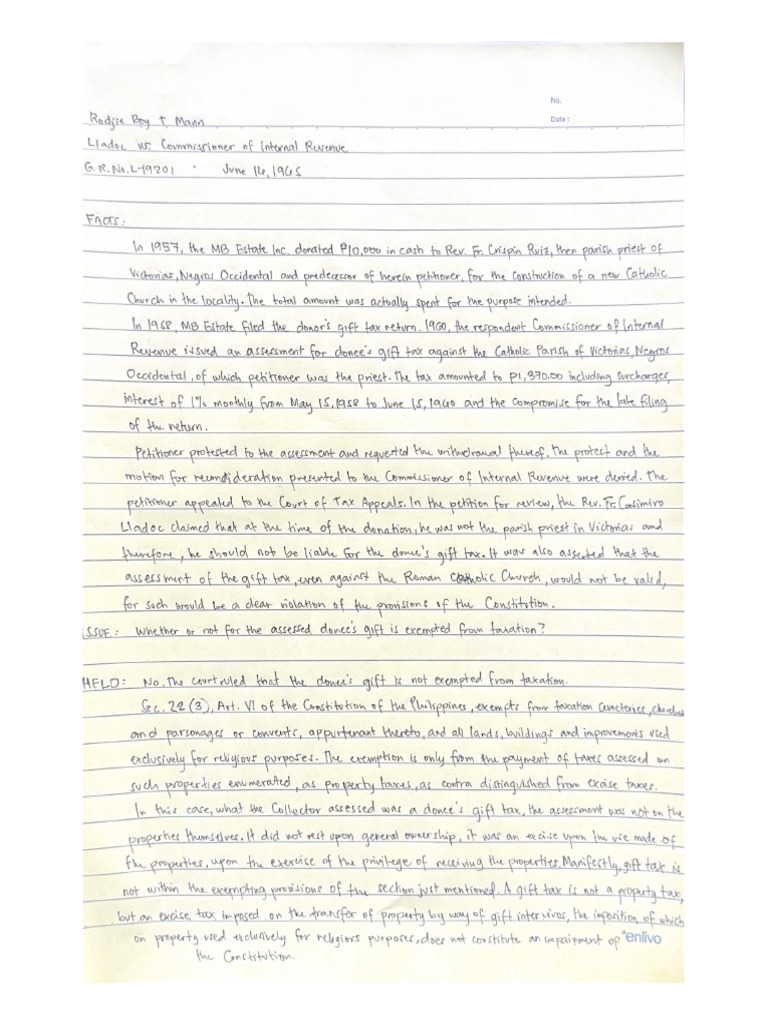 No.
Date:
Rodjie Boy T. Mann
Lladoc vs. Commissioner of Internal Revenue
G.R. No. L-19201 June 16, 1965
FACTS:
In 1957, the MB Estate Inc. donated ₱10,000 in cash to Rev. Fr. Crispin Ruiz, then parish priest of
Victorias, Negros Occidental and predecessor of herein petitioner, for the construction of a new Catholic
Church in the locality. The total amount was actually spent for the purpose intended.
In 1958, MB Estate filed the donor's gift tax return. 1960, the respondent Commissioner of Internal
Revenue issued an assessment for donee's gift tax against the Catholic Parish of Victorias, Negros
Occidental, of which petitioner was the priest. The tax amounted to P1,370.00 including surcharges,
interest of 1% monthly from May 15, 1958 to June 15, 1960 and the compromise for the late filing
of the return.
Petitioner protested to the assessment and requested the withdrawal thereof. The protest and the
motion for reconsideration presented to the Commissioner of Internal Revenue were denied. The
petitioner appealed to the Court of Tax Appeals. In the petition for review, the Rev. Fr. Casimiro
Lladoc claimed that at the time of the donation, he was not the parish priest in Victorias and
therefore, he should not be liable for the donee's gift tax. It was also asserted that the
assessment of the gift tax, even against the Roman Catholic Church, would not be valid,
for such would be a clear violation of the provisions of the Constitution.
ISSUE: Whether or not for the assessed donee's gift is exempted from taxation?
HELD: No. The court ruled that the donee's gift is not exempted from taxation.
Sec. 22 (3), Art. VI of the Constitution of the Philippines, exempts from taxation cemeteries, churches
and parsonages or convents, appurtenant thereto, and all lands, buildings and improvements used
exclusively for religious purposes. The exemption is only from the payment of taxes assessed on
such properties enumerated, as property taxes, as contra distinguished from excise taxes.
In this case, what the Collector assessed was a donee's gift tax, the assessment was not on the
properties themselves. It did not rest upon general ownership, it was an excise upon the use made of
the properties, upon the exercise of the privilege of receiving the properties. Manifestly, gift tax is
not within the exempting provisions of the section just mentioned. A gift tax is not a property tax,
but an excise tax imposed on the transfer of property by way of gift inter vivos, the imposition of which
on property used exclusively for religious purposes, does not constitute an impairment of
the Constitution.
enlivo